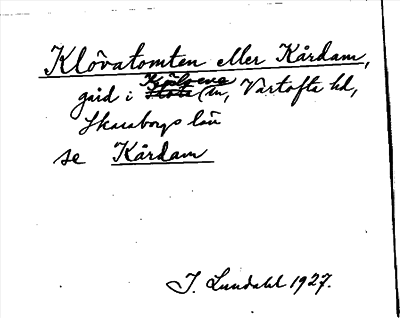 Klövatomten eller Kårdam,
gård i Kymbo sn, Vartofta hd,
Skaraborgs län
se Kårdam
J. Lundahl 1927.